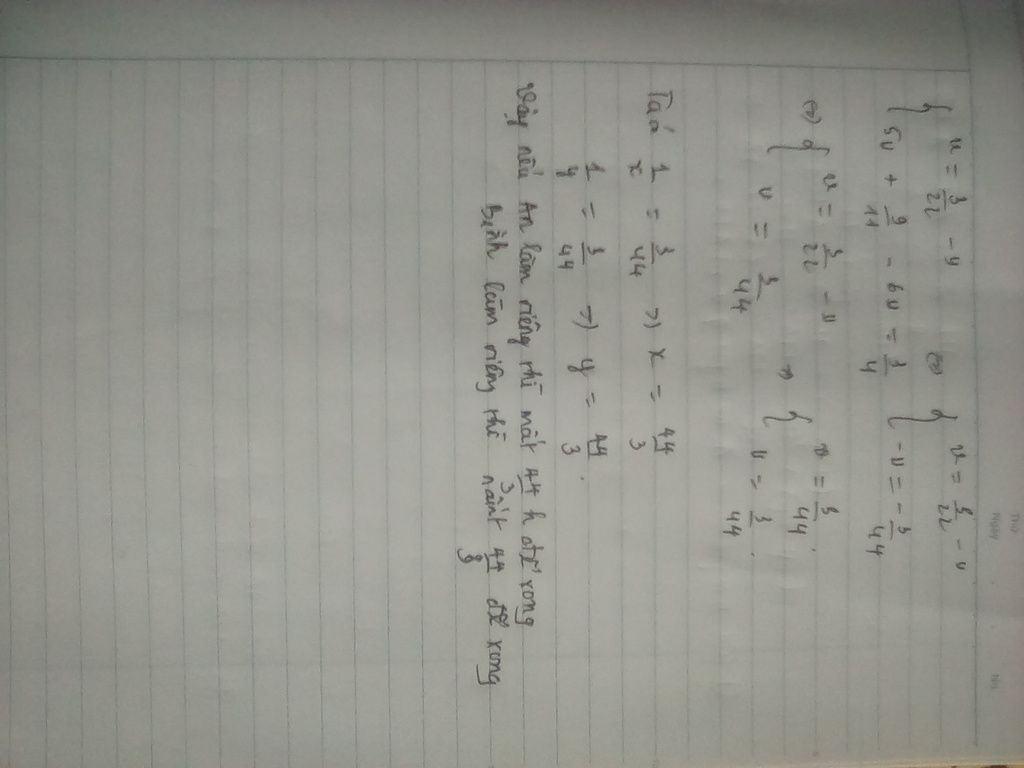 Thứ
Ngày
{ u = 3/22 - v <=> { u = 3/22 - v
{ 5v + 9/11 - 6v = 3/4 { -v = -3/44
<=> { u = 3/22 - v <=> { u = 3/44.
{ v = 3/44 { v = 3/44.
Ta có 1/x = 3/44 => x = 44/3
1/y = 3/44 => y = 44/3.
Vậy nếu An làm riêng thì mất 44/3 h để xong
Bình làm riêng thì mất 44/3 để xong